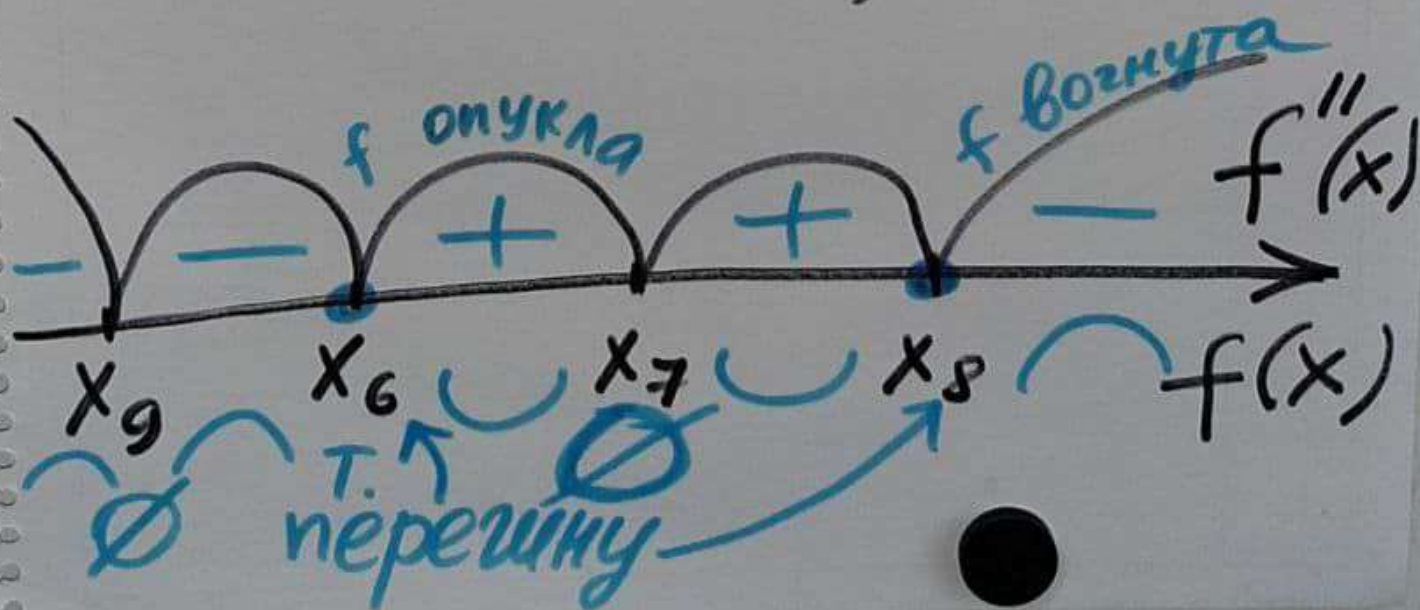 f опукла f вогнута
− − + + − f''(x)
x₉ x₆ x₇ x₈ f(x)
∅ т. ∅
перегину